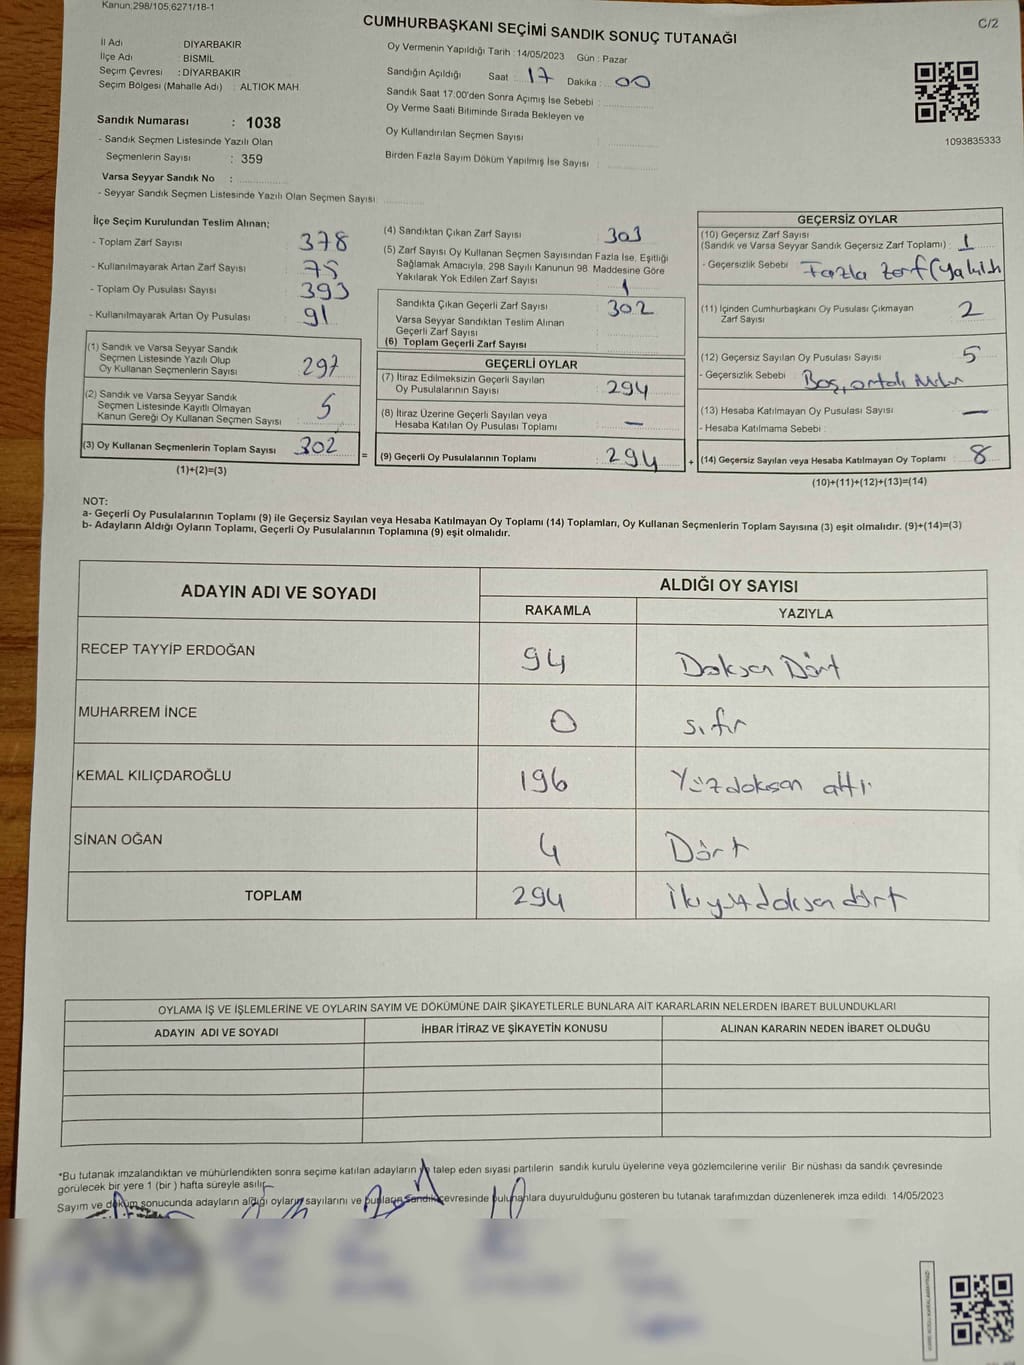 Kanun,298/105,6271/18-1
C/2
CUMHURBAŞKANI SEÇİMİ SANDIK SONUÇ TUTANAĞI
İl Adı DİYARBAKIR
İlçe Adı : BİSMİL
Seçim Çevresi : DİYARBAKIR
Seçim Bölgesi (Mahalle Adı) : ALTIOK MAH
Sandık Numarası : 1038
- Sandık Seçmen Listesinde Yazılı Olan
Seçmenlerin Sayısı : 359
Varsa Seyyar Sandık No :
- Seyyar Sandık Seçmen Listesinde Yazılı Olan Seçmen Sayısı
Oy Vermenin Yapıldığı Tarih : 14/05/2023 Gün : Pazar
Sandığın Açıldığı Saat : 17 Dakika : 00
Sandık Saat 17:00'den Sonra Açımış İse Sebebi :
Oy Verme Saati Bitiminde Sırada Bekleyen ve
Oy Kullandırılan Seçmen Sayısı
Birden Fazla Sayım Döküm Yapılmış İse Sayısı
1093835333
İlçe Seçim Kurulundan Teslim Alınan;
- Toplam Zarf Sayısı 378
- Kullanılmayarak Artan Zarf Sayısı 75
- Toplam Oy Pusulası Sayısı 393
- Kullanılmayarak Artan Oy Pusulası 91
(1) Sandık ve Varsa Seyyar Sandık
Seçmen Listesinde Yazılı Olup
Oy Kullanan Seçmenlerin Sayısı 297
(2) Sandık ve Varsa Seyyar Sandık
Seçmen Listesinde Kayıtlı Olmayan
Kanun Gereği Oy Kullanan Seçmen Sayısı 5
(3) Oy Kullanan Seçmenlerin Toplam Sayısı 302
(1)+(2)=(3)
(4) Sandıktan Çıkan Zarf Sayısı 303
(5) Zarf Sayısı Oy Kullanan Seçmen Sayısından Fazla İse, Eşitliği
Sağlamak Amacıyla, 298 Sayılı Kanunun 98 Maddesine Göre
Yakılarak Yok Edilen Zarf Sayısı 1
Sandıkta Çıkan Geçerli Zarf Sayısı : 302
Varsa Seyyar Sandıktan Teslim Alınan
Geçerli Zarf Sayısı
(6) Toplam Geçerli Zarf Sayısı
GEÇERLİ OYLAR
(7) İtiraz Edilmeksizin Geçerli Sayılan
Oy Pusulalarının Sayısı : 294
(8) İtiraz Üzerine Geçerli Sayılan veya
Hesaba Katılan Oy Pusulası Toplamı : —
= (9) Geçerli Oy Pusulalarının Toplamı : 294
GEÇERSİZ OYLAR
(10) Geçersiz Zarf Sayısı
(Sandık ve Varsa Seyyar Sandık Geçersiz Zarf Toplamı) : 1
- Geçersizlik Sebebi : Fazla Zarf (Yakıldı
(11) İçinden Cumhurbaşkanı Oy Pusulası Çıkmayan
Zarf Sayısı 2
(12) Geçersiz Sayılan Oy Pusulası Sayısı : 5
- Geçersizlik Sebebi : Boş, ortalı
(13) Hesaba Katılmayan Oy Pusulası Sayısı : —
- Hesaba Katılmama Sebebi :
+ (14) Geçersiz Sayılan veya Hesaba Katılmayan Oy Toplamı : 8
(10)+(11)+(12)+(13)=(14)
NOT:
a- Geçerli Oy Pusulalarının Toplamı (9) ile Geçersiz Sayılan veya Hesaba Katılmayan Oy Toplamı (14) Toplamları, Oy Kullanan Seçmenlerin Toplam Sayısına (3) eşit olmalıdır. (9)+(14)=(3)
b- Adayların Aldığı Oyların Toplamı, Geçerli Oy Pusulalarının Toplamına (9) eşit olmalıdır.
ADAYIN ADI VE SOYADI
ALDIĞI OY SAYISI
RAKAMLA YAZIYLA
RECEP TAYYİP ERDOĞAN 94 Doksan Dört
MUHARREM İNCE 0 sıfır
KEMAL KILIÇDAROĞLU 196 Yüzdoksan altı
SİNAN OĞAN 4 Dört
TOPLAM 294 İkiyüzdoksandört
OYLAMA İŞ VE İŞLEMLERİNE VE OYLARIN SAYIM VE DÖKÜMÜNE DAİR ŞİKAYETLERLE BUNLARA AİT KARARLARIN NELERDEN İBARET BULUNDUKLARI
ADAYIN ADI VE SOYADI İHBAR İTİRAZ VE ŞİKAYETİN KONUSU ALINAN KARARIN NEDEN İBARET OLDUĞU
*Bu tutanak imzalandıktan ve mühürlendikten sonra seçime katılan adayların talep eden siyasi partilerin sandık kurulu üyelerine veya gözlemcilerine verilir Bir nüshası da sandık çevresinde
görülecek bir yere 1 (bir ) hafta süreyle asılır
Sayım ve döküm sonucunda adayların aldığı oyların sayılarını ve bunların Sandık çevresinde bulunanlara duyurulduğunu gösteren bu tutanak tarafımızdan düzenlenerek imza edildi 14/05/2023